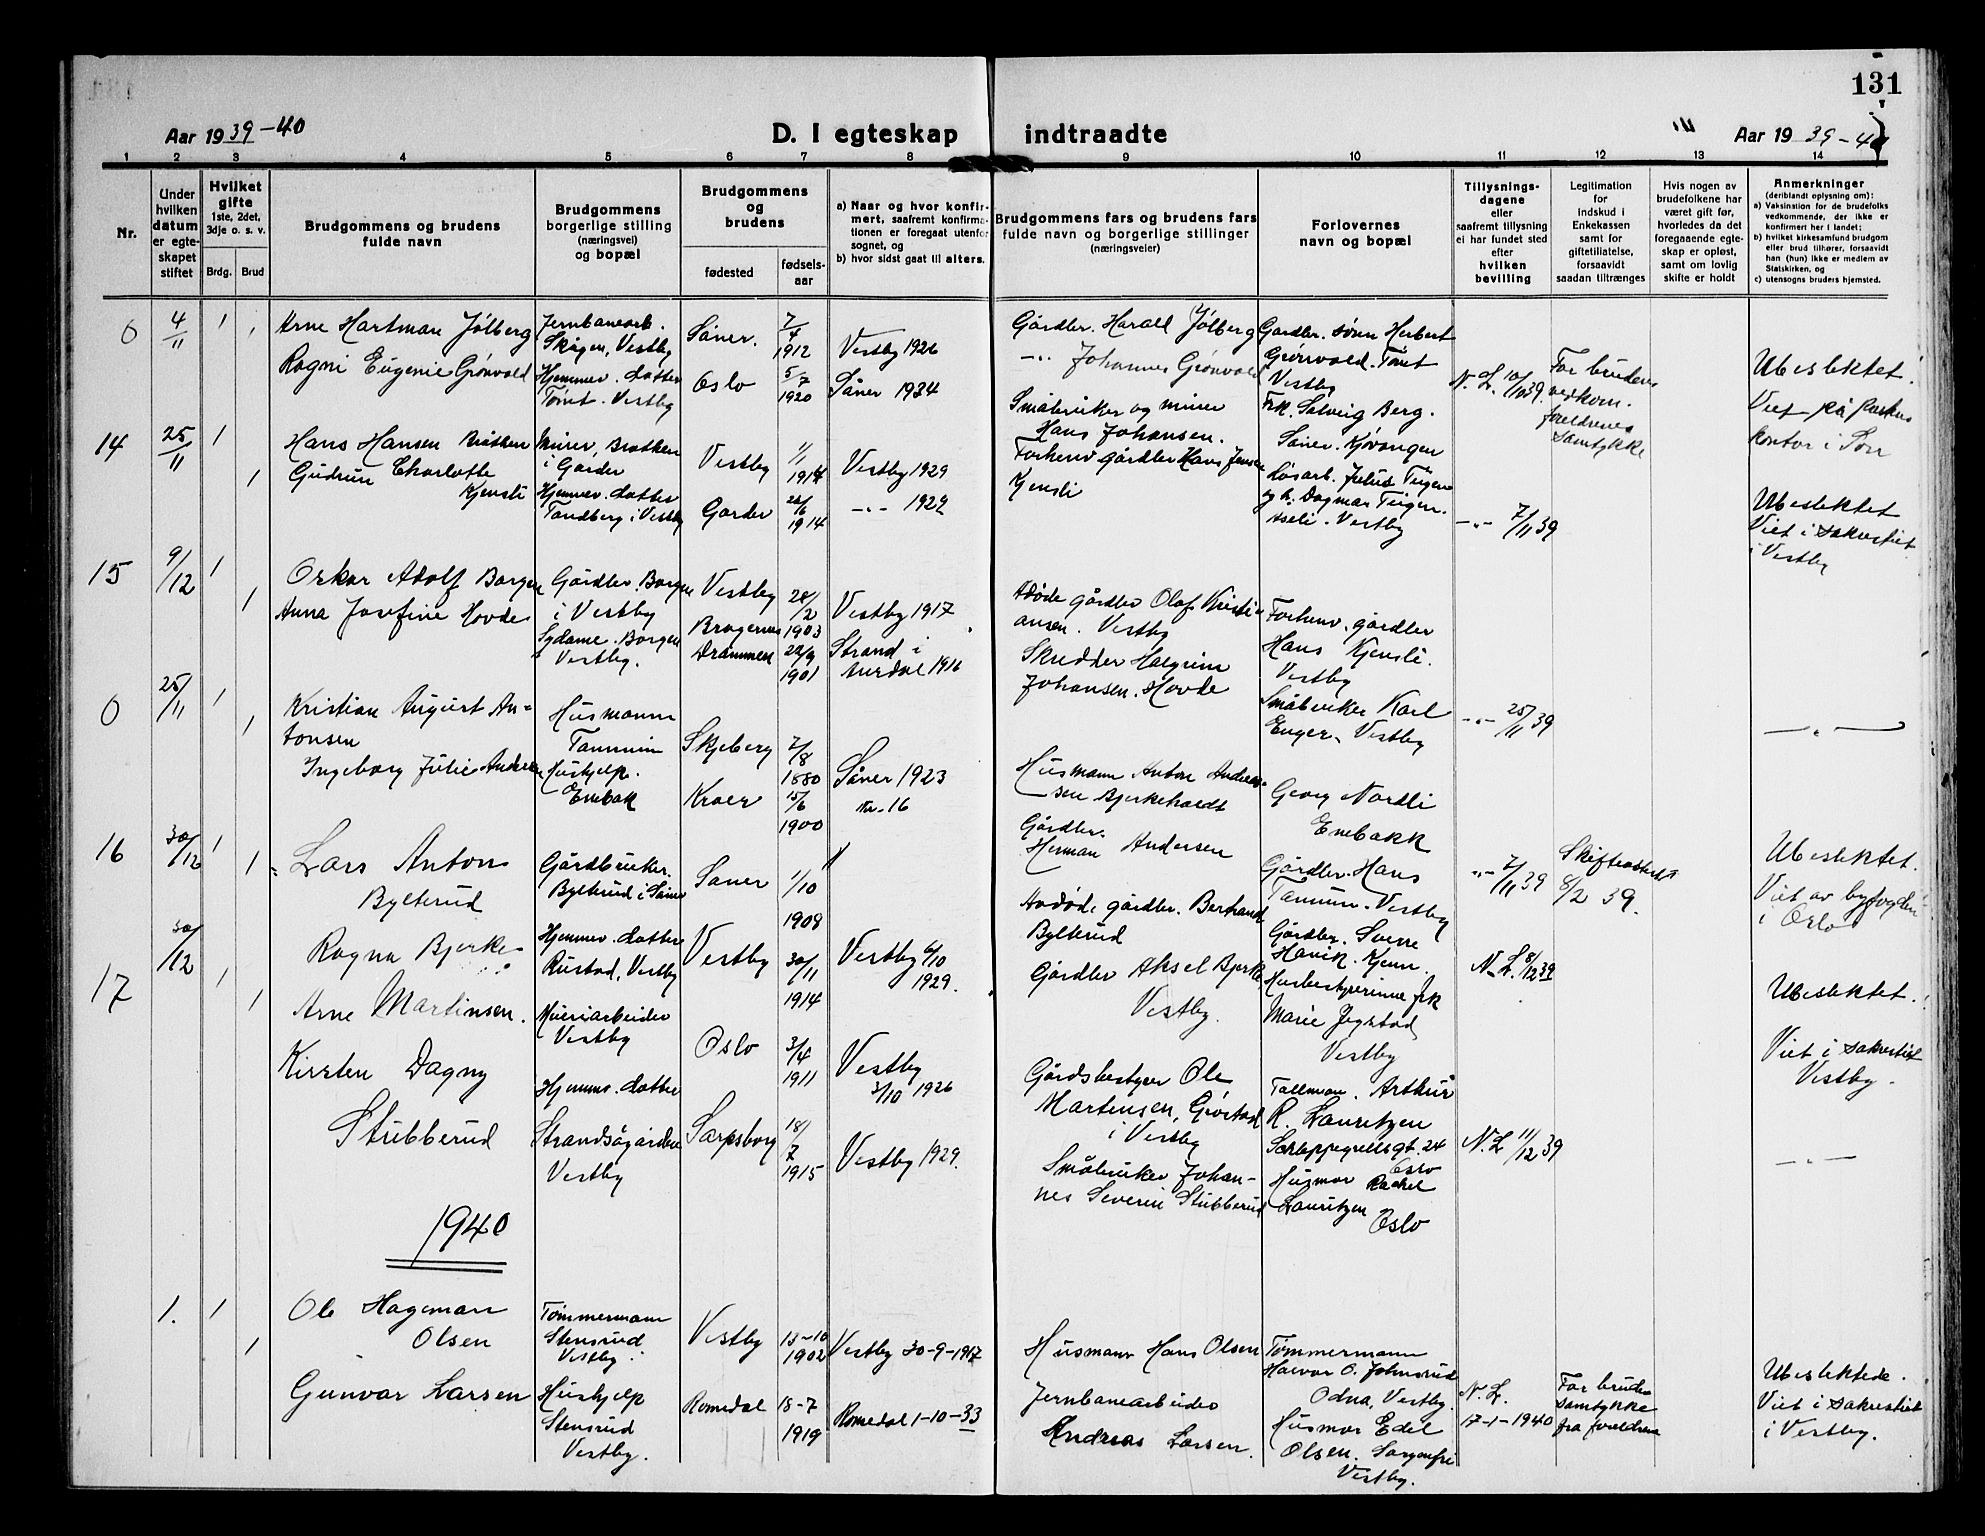 131
Aar 1939-40
D. I egteskap indtraadte
Aar 1939-40
1 2 3 4 5 6 7 8 9 10 11 12 13 14
Nr.
Under hvilken datum er egteskapet stiftet
Hvilket gifte 1ste, 2det, 3dje o. s. v.
Brdg. Brud
Brudgommens og brudens fulde navn
Brudgommens borgerlige stilling (næringsvei) og bopæl
Brudgommens og brudens
fødested
fødselsaar
a) Naar og hvor konfirmert, saafremt konfirmationen er foregaat utenfor sognet, og
b) hvor sidst gaat til alters.
Brudgommens fars og brudens fars fulde navn og borgerlige stillinger (næringsveier)
Forlovernes navn og bopæl
Tillysningsdagene eller saafremt tillysning ei har fundet sted efter hvilken bevilling
Legitimation for indskud i Enkekassen samt for giftetillatelse, forsaavidt saadan tiltrænges
Hvis nogen av brudefolkene har været gift før, hvorledes da det foregaaende egteskap er opløst, samt om lovlig skifte er holdt
Anmerkninger (deriblandt oplysning om):
a) Vaksination for de brudefolks vedkommende, der ikke er konfirmert her i landet;
b) hvilket kirkesamfund brudgom eller brud tilhører, forsaavidt han (hun) ikke er medlem av Statskirken, og
c) utensogns bruders hjemsted.
0
4/11
1
1
Arne Hartman Jølberg
Ragni Eugenie Grønvold
Jernbanearb.
Skogen, Vestby
Hjemmev. datter
Tomt. Vestby
Såner.
Oslo
7/4
1912
5/7
1920
Vestby 1926
Såner 1934
Gårdbr. Harald Jølberg
-"- Johannes Grønvold
Gårdbr. sønn Herbert
Grønvold. Tomt
Vestby
Frk. Solveig Berg.
Såner. Kjøvangen
N. L. 10/10 39.
For brudens
vedkom.
foreldrenes
samtykke
Ubeslektet.
Viet på
kontor i Son
14
25/11
1
1
Hans Hansen Bråtken
Gudrun Charlotte
Kjensli
Murer, Bråtken
i Garder
Hjemmev. datter
Tandberg i Vestby
Vestby
Garder
1/1
1914
1914
Vestby 1929
-"- 1929
Småbruker og murer
Hans Johansen.
Forhenv gårdbr Hans Jensen
Kjensli
Løsarb. Julius Teigen
og h. Dagmar Teigen.
Vestby
-"- 7/11 39
Ubeslektet
Viet i sakristiet
i Vestby
15
9/12
1
1
Oskar Adolf Borgen
Anna Josefine Hovde
Gårdbr. Borgen
i Vestby
Sydame. Borgen
Vestby.
Vestby
Bragernes
Drammen
28/2
1903
22/9
1901
Vestby 1917
Strand i
Aurdal 1916
Afdøde gårdbr Olaf Kristi-
ansen. Vestby
Skredder Halgrim
Johansen. Hovde
Forhenv. gårdbr
Hans Kjensli.
Vestby
Småbruker Karl
Enger, Vestby
-"- 25/11 39
-"-
0
25/11
1
1
Kristian August An-
tonsen
Ingeborg Julie Andersen
Husmann
Tannum
Hushjelp.
Enebak
Skjeberg
Kroer
7/8
1880
15/6
1900
Såner 1923
Nr. 16
Husmann Anton Andres-
sen Bjerkeholdt
Gårdbr.
Herman Andersen
Georg Nordli
Enebakk
Gårdbr. Hans
Tannum. Vestby
-"- 7/11 39
Skifteattest
8/2 39.
Ubeslektet.
Viet av byfogden
i Oslo
16
30/12
1
1
Lars Anton
Bylterud
Ragna Bjerke
Gårdbruker.
Bylterud i Såner
Hjemmev. datter
Rustad, Vestby
Såner
Vestby
1/10
1908
30/11
1914
Vestby 6/10
1929.
Avdøde gårdbr. Bertrand
Bylterud
Gårdbr Aksel Bjerke
Vestby.
Gårdbr. Sverre
Husbestyrerinne frk
Marie
Vestby
N. L. 8/12 39
Ubeslektet.
Viet i sakristiet
Vestby.
17
30/12
1
1
Arne Martinsen.
Kirsten Dagny
Stubberud
Meieriarbeider
Vestby
Hjemmev. datter
Vestby
Oslo
Sarpsborg
3/4
1911
18/7
1915
Vestby
3/10 1926
Vestby 1929.
Gårdsbestyrer Ole
Martinsen, Grøstad
i Vestby
Småbruker Johan-
nes Severin Stubberud
Tollmann. Arthur
R. Lauritzen
24
Oslo
Husmor Rachel
Lauritzen
Oslo
N. L 11/12 39
-"-
1940
1.
1
1
Ole Hageman
Olsen
Gunvor Larsen
Tømmermann
Stensrud
Vestby
Hushjelp
Stensrud
Vestby.
Vestby
Romedal
13-10
1902
18-7
1919
Vestby 30-9-1917
Romedal 1-10-33
Husmann Hans Olsen
Jernbanearbeider
Andreas Larsen.
Tømmermann
Halvor O. Johnsrud
Odna, Vestby.
Husmor Edel
Olsen. Sorgenfri
Vestby.
N. L.
17-1-1940
For bruden
samtykke
fra foreldrene
Ubeslektede.
Viet i sakristiet
i Vestby.